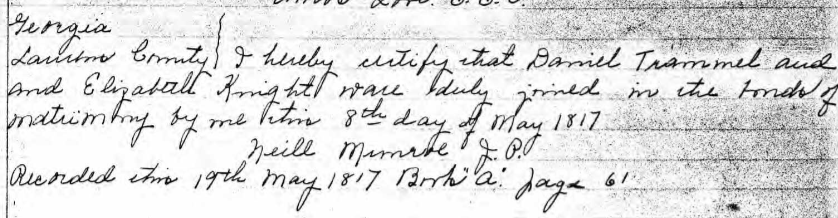 Georgia
Laurens County } I hereby certify that Daniel Trammel and
and Elizabeth Knight ware duly joined in the bonds of
matrimony by me this 8th day of May 1817
Neill Munroe J. P.
Recorded this 19th May 1817 Book "a" page 61